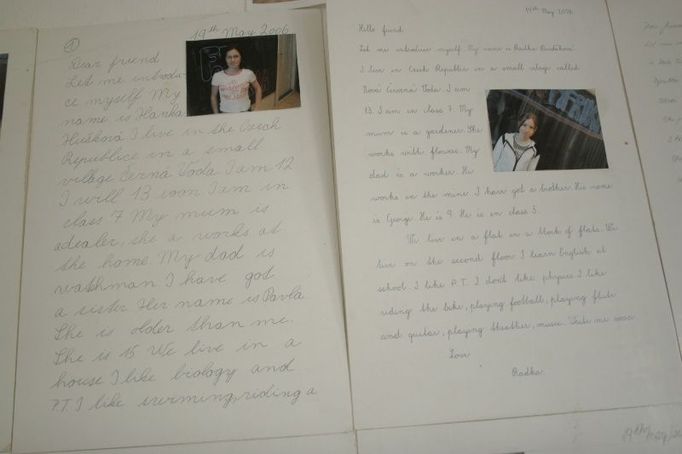 1
19th May 2006
Dear friend
Let me introdu-
ce myself My
name is Hanka
Husáková I live in the Czech
Republice in a small
village Černá Voda I am 12
I will 13 soon I am in
class 7 My mum is
a dealer, she a works at
the home My dad is
wathman I have god
a sister Her name is Pavla
She is older than me.
She is 15 We live in a
house I like biology and
P.T. I like swimming, riding a
19th May 2006
Hello friend.
Let me introduce myself. My name is Radka
I live in Czech Republic in a small village called
Nová Červená Voda. I am
13. I am in class 7. My
mum is a gardener. She
works with flowers. My
dad is a worker. He
works in the mine. I have got a brother. His name
is George. He is 9. He is in class 3.
We live in a flat in a block of flats. We
live on the second floor. I learn English at
school. I like P.T. I don't like physics. I like
riding the bike, playing football, playing flute
and guitar, playing theather, music. Write me soon
Love
Radka
19th May